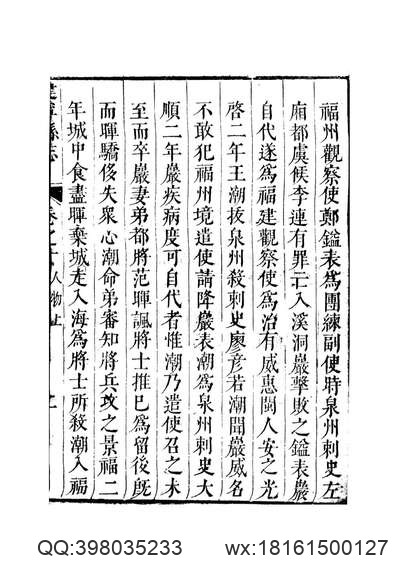 福州觀察使鄭鎰表爲團練副使時泉州刺史左
廂都虞候李連有罪亡入溪洞巖擊敗之鎰表巖
自代遂爲福建觀察使爲治有威惠閩人安之光
啓二年王潮拔泉州殺刺史廖彥若潮聞巖威名
不敢犯福州境遣使請降巖表潮爲泉州刺史大
順二年巖疾病度可自代者惟潮乃遣使召之未
至而卒巖妻弟都將范暉諷將士推已爲留後旣
而暉驕侈失衆心潮命弟審知將兵攻之景福二
年城中食盡暉棄城走入海爲將士所殺潮入福
縣志
卷之
人物
QQ:398035233 wx:18161500127